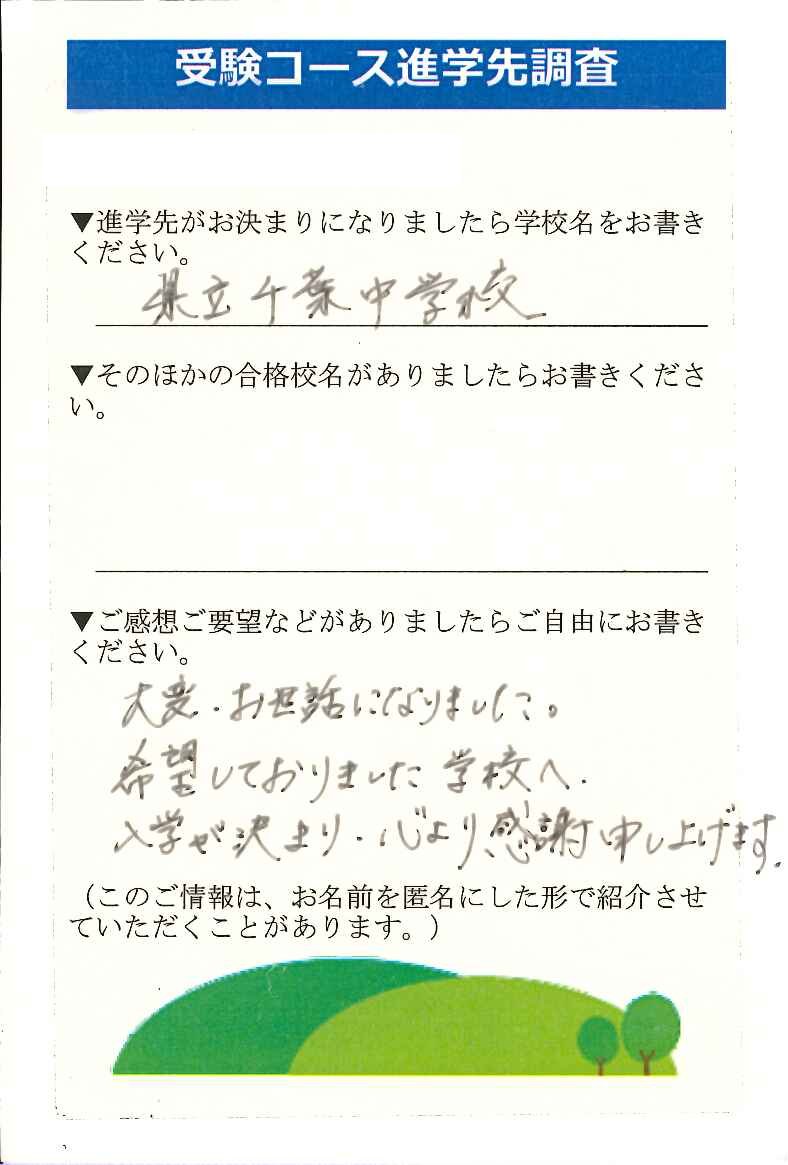 受験コース進学先調査
▼進学先がお決まりになりましたら学校名をお書き
ください。
県立千葉中学校
▼そのほかの合格校名がありましたらお書きくださ
い。
▼ご感想ご要望などがありましたらご自由にお書き
ください。
大変、お世話になりました。
希望しておりました学校へ、
入学が決まり、心より感謝申し上げます。
（このご情報は、お名前を匿名にした形で紹介させ
ていただくことがあります。）